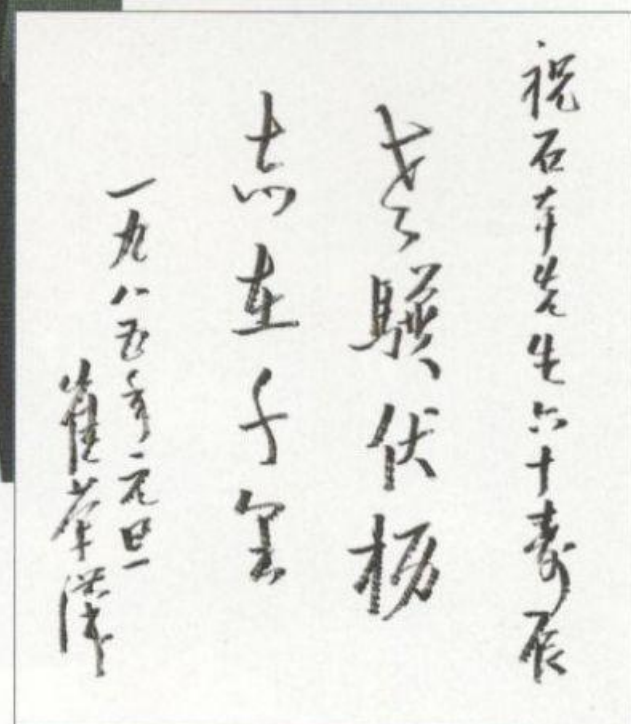 祝石本先生六十寿辰
老骥伏枥
志在千里
一九八五年元旦
崔荣汉